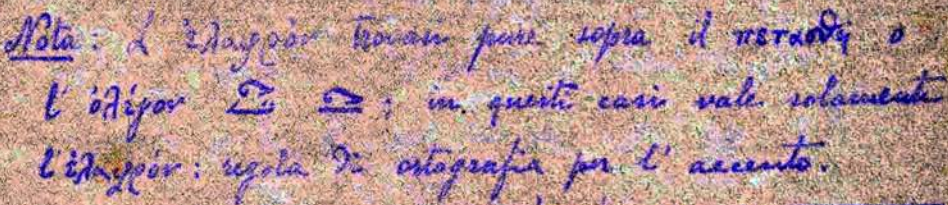 Nota: L' ἐλαφρόν trovasi pure sopra il πετασθή o
l' ὀλίγον ; in questi casi vale solamente
l' ἐλαφρόν: regola di ortografia per l' accento.